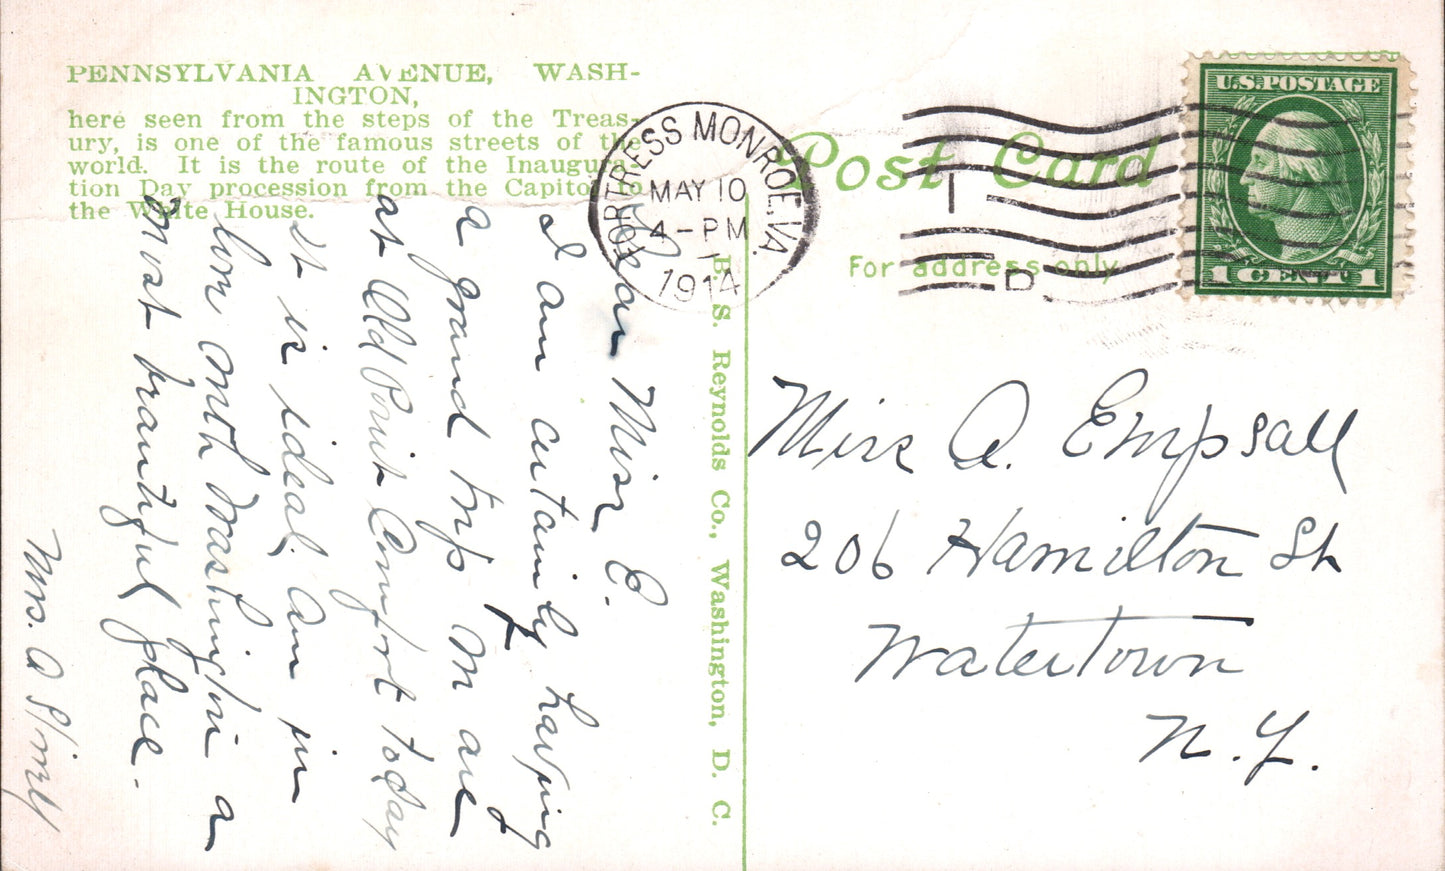 PENNSYLVANIA AVENUE, WASH-
INGTON,
here seen from the steps of the Treas-
ury, is one of the famous streets of the
world. It is the route of the Inaugura-
tion Day procession from the Capitol to
the White House.
Dear Miss E.
I am certainly having
a grand trip. We are
at Old Point Comfort today
it is ideal. Am in
love with Washington a
most beautiful place.
Mrs. A
B. S. Reynolds Co., Washington, D. C.
FORTRESS MONROE, VA.
MAY 10
4-PM
1914
I
D
Post Card
For address only
U.S. POSTAGE
1 CENT 1
Miss A. Empsall
206 Hamilton St
Watertown
N.Y.